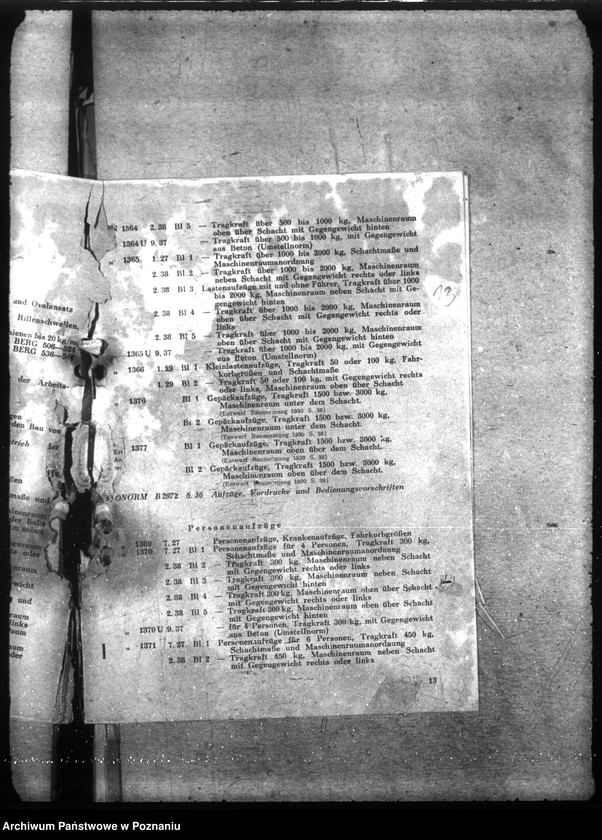 and Ovalansatz
Rillenschwellen,
hienen bis 20 kg/m
BERG 506—
BERG 536—
der Arbeits-
den Bau von
maße und
1364 2.38 Bl 5 — Tragkraft über 500 bis 1000 kg, Maschinenraum
oben über Schacht mit Gegengewicht hinten
1364 U 9.37 — Tragkraft über 500 bis 1000 kg, mit Gegengewicht
aus Beton (Umstellnorm)
„ 1365 1.27 Bl 1 — Tragkraft über 1000 bis 2000 kg, Schachtmaße und
Maschinenraumanordnung
2.38 Bl 2 — Tragkraft über 1000 bis 2000 kg, Maschinenraum
neben Schacht mit Gegengewicht rechts oder links
2.38 Bl 3 Lastenaufzüge mit und ohne Führer, Tragkraft über 1000
bis 2000 kg, Maschinenraum neben Schacht mit Ge-
gengewicht hinten
2.38 Bl 4 — Tragkraft über 1000 bis 2000 kg, Maschinenraum
oben über Schacht mit Gegengewicht rechts oder
links
2.38 Bl 5 — Tragkraft über 1000 bis 2000 kg, Maschinenraum
oben über Schacht mit Gegengewicht hinten
1365 U 9.37 — Tragkraft über 1000 bis 2000 kg, mit Gegengewicht
aus Beton (Umstellnorm)
„ 1366 1.29 Bl 1 Kleinlastenaufzüge, Tragkraft 50 oder 100 kg, Fahr-
korbgrößen und Schachtmaße
1.29 Bl 2 — Tragkraft 50 oder 100 kg, mit Gegengewicht rechts
oder links, Maschinenraum oben über Schacht
1376 Bl 1 Gepäckaufzüge, Tragkraft 1500 bzw. 3000 kg,
Maschinenraum unter dem Schacht.
(Entwurf Baunormung 1930 S. 38)
Bl 2 Gepäckaufzüge, Tragkraft 1500 bzw. 3000 kg,
Maschinenraum unter dem Schacht.
(Entwurf Baunormung 1930 S. 38)
1377 Bl 1 Gepäckaufzüge, Tragkraft 1500 bzw. 3000 kg,
Maschinenraum oben über dem Schacht.
(Entwurf Baunormung 1930 S. 38)
Bl 2 Gepäckaufzüge, Tragkraft 1500 bzw. 3000 kg,
Maschinenraum oben über dem Schacht.
(Entwurf Baunormung 1930 S. 38)
ONORM B 2072 6.36 Aufzüge, Vordrucke und Bedienungsvorschriften
Personenaufzüge
1369 7.27 Personenaufzüge, Krankenaufzüge, Fahrkorbgrößen
1370 7.27 Bl 1 Personenaufzüge für 4 Personen, Tragkraft 300 kg,
Schachtmaße und Maschinenraumanordnung
2.38 Bl 2 — Tragkraft 300 kg, Maschinenraum neben Schacht
mit Gegengewicht rechts oder links
2.38 Bl 3 — Tragkraft 300 kg, Maschinenraum neben Schacht
mit Gegengewicht hinten
2.38 Bl 4 — Tragkraft 300 kg, Maschinenraum oben über Schacht
mit Gegengewicht rechts oder links
2.38 Bl 5 — Tragkraft 300 kg, Maschinenraum oben über Schacht
mit Gegengewicht hinten
„ 1370 U 9.37 für 4 Personen, Tragkraft 300 kg, mit Gegengewicht
aus Beton (Umstellnorm)
„ 1371 7.27 Bl 1 Personenaufzüge für 6 Personen, Tragkraft 450 kg,
Schachtmaße und Maschinenraumanordnung
2.38 Bl 2 — Tragkraft 450 kg, Maschinenraum neben Schacht
mit Gegengewicht rechts oder links
13
13
Archiwum Państwowe w Poznaniu